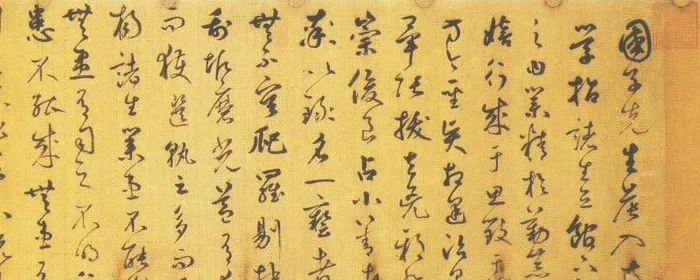 國子先生晨入太
學招諸生立館下
之曰業精於勤荒
嬉行成于思毀于
方今聖賢相逢治具
畢張拔去兇邪
崇俊良占小善者
率以錄名一藝者
無不庸爬羅剔抉
刮垢磨光蓋有
而獲選孰云多而
揚諸生業患不能
無患有司之不明
患不能成無患有